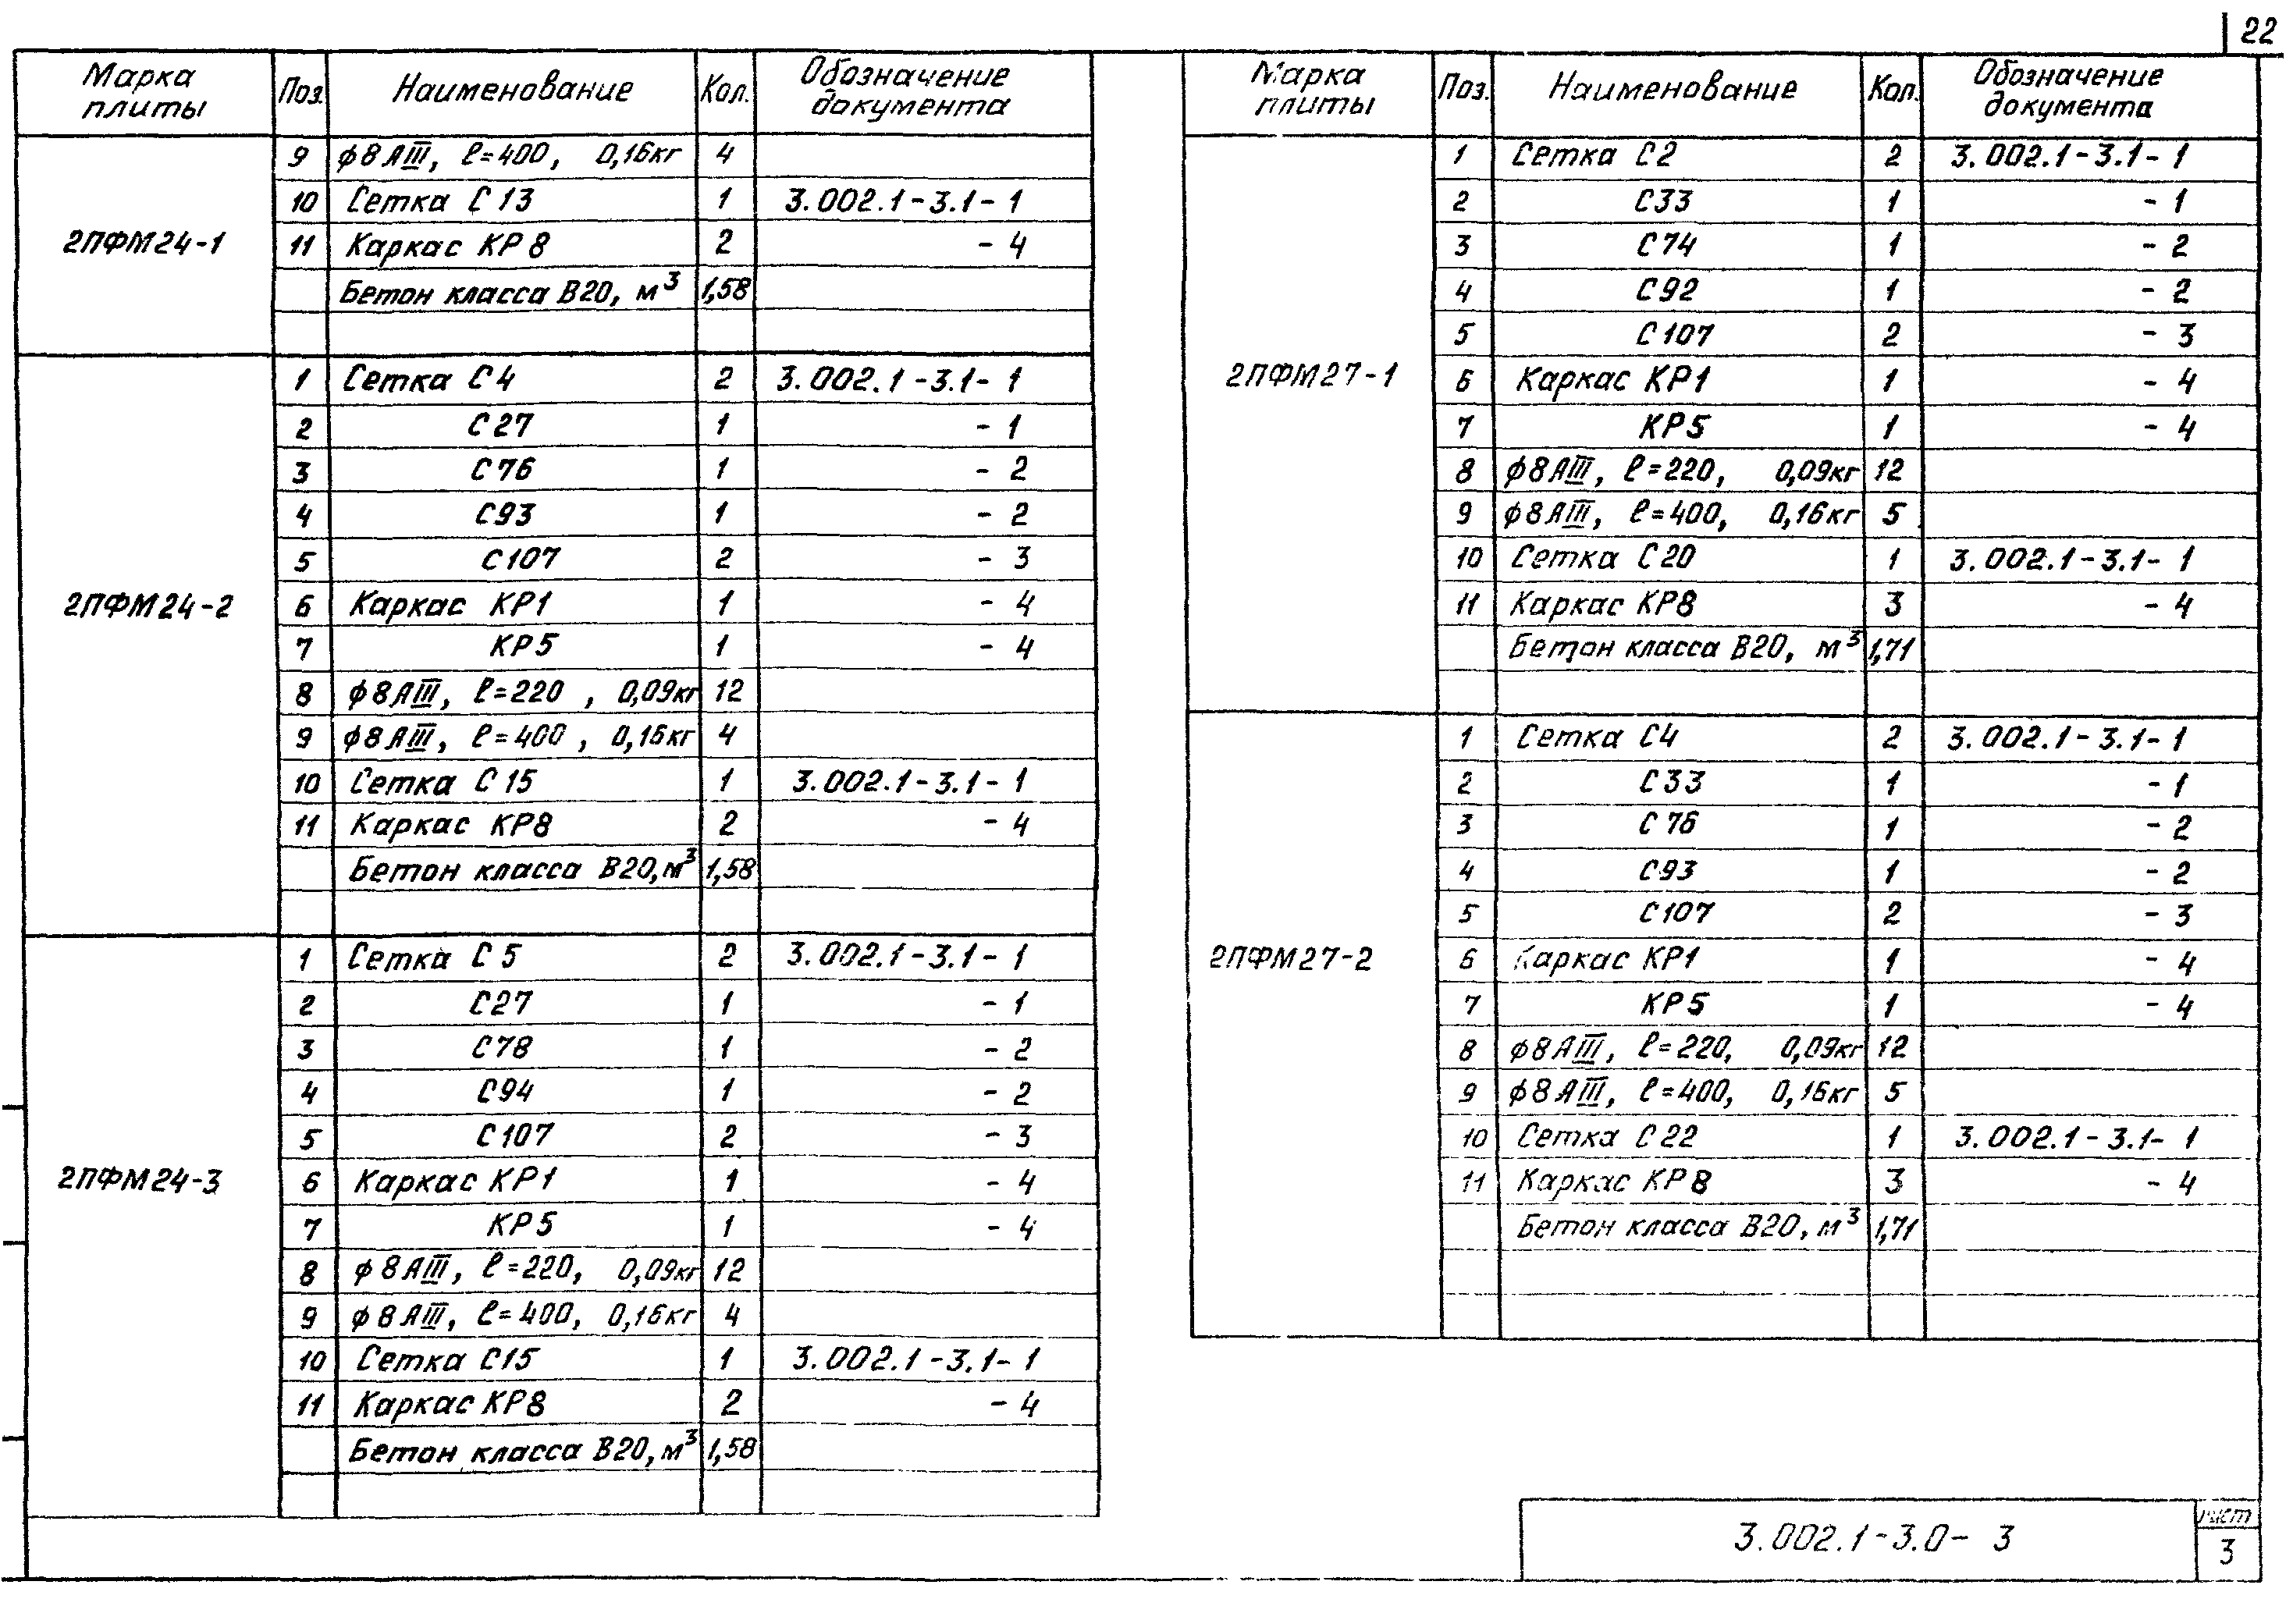 22
Марка плиты Поз. Наименование Кол. Обозначение документа
2ПФМ24-1
9 ϕ8АIII, ℓ=400, 0,16кг 4
10 Сетка С13 1 3.002.1-3.1-1
11 Каркас КР8 2 -4
Бетон класса В20, м³ 1,58
2ПФМ24-2
1 Сетка С4 2 3.002.1-3.1-1
2 С27 1 -1
3 С76 1 -2
4 С93 1 -2
5 С107 2 -3
6 Каркас КР1 1 -4
7 КР5 1 -4
8 ϕ8АIII, ℓ=220, 0,09кг 12
9 ϕ8АIII, ℓ=400, 0,16кг 4
10 Сетка С15 1 3.002.1-3.1-1
11 Каркас КР8 2 -4
Бетон класса В20, м³ 1,58
2ПФМ24-3
1 Сетка С5 2 3.002.1-3.1-1
2 С27 1 -1
3 С78 1 -2
4 С94 1 -2
5 С107 2 -3
6 Каркас КР1 1 -4
7 КР5 1 -4
8 ϕ8АIII, ℓ=220, 0,09кг 12
9 ϕ8АIII, ℓ=400, 0,16кг 4
10 Сетка С15 1 3.002.1-3.1-1
11 Каркас КР8 2 -4
Бетон класса В20, м³ 1,58
Марка плиты Поз. Наименование Кол. Обозначение документа
2ПФМ27-1
1 Сетка С2 2 3.002.1-3.1-1
2 С33 1 -1
3 С74 1 -2
4 С92 1 -2
5 С107 2 -3
6 Каркас КР1 1 -4
7 КР5 1 -4
8 ϕ8АIII, ℓ=220, 0,09кг 12
9 ϕ8АIII, ℓ=400, 0,16кг 5
10 Сетка С20 1 3.002.1-3.1-1
11 Каркас КР8 3 -4
Бетон класса В20, м³ 1,71
2ПФМ27-2
1 Сетка С4 2 3.002.1-3.1-1
2 С33 1 -1
3 С76 1 -2
4 С93 1 -2
5 С107 2 -3
6 Каркас КР1 1 -4
7 КР5 1 -4
8 ϕ8АIII, ℓ=220, 0,09кг 12
9 ϕ8АIII, ℓ=400, 0,16кг 5
10 Сетка С22 1 3.002.1-3.1-1
11 Каркас КР8 3 -4
Бетон класса В20, м³ 1,71
3.002.1-3.0-3
лист
3